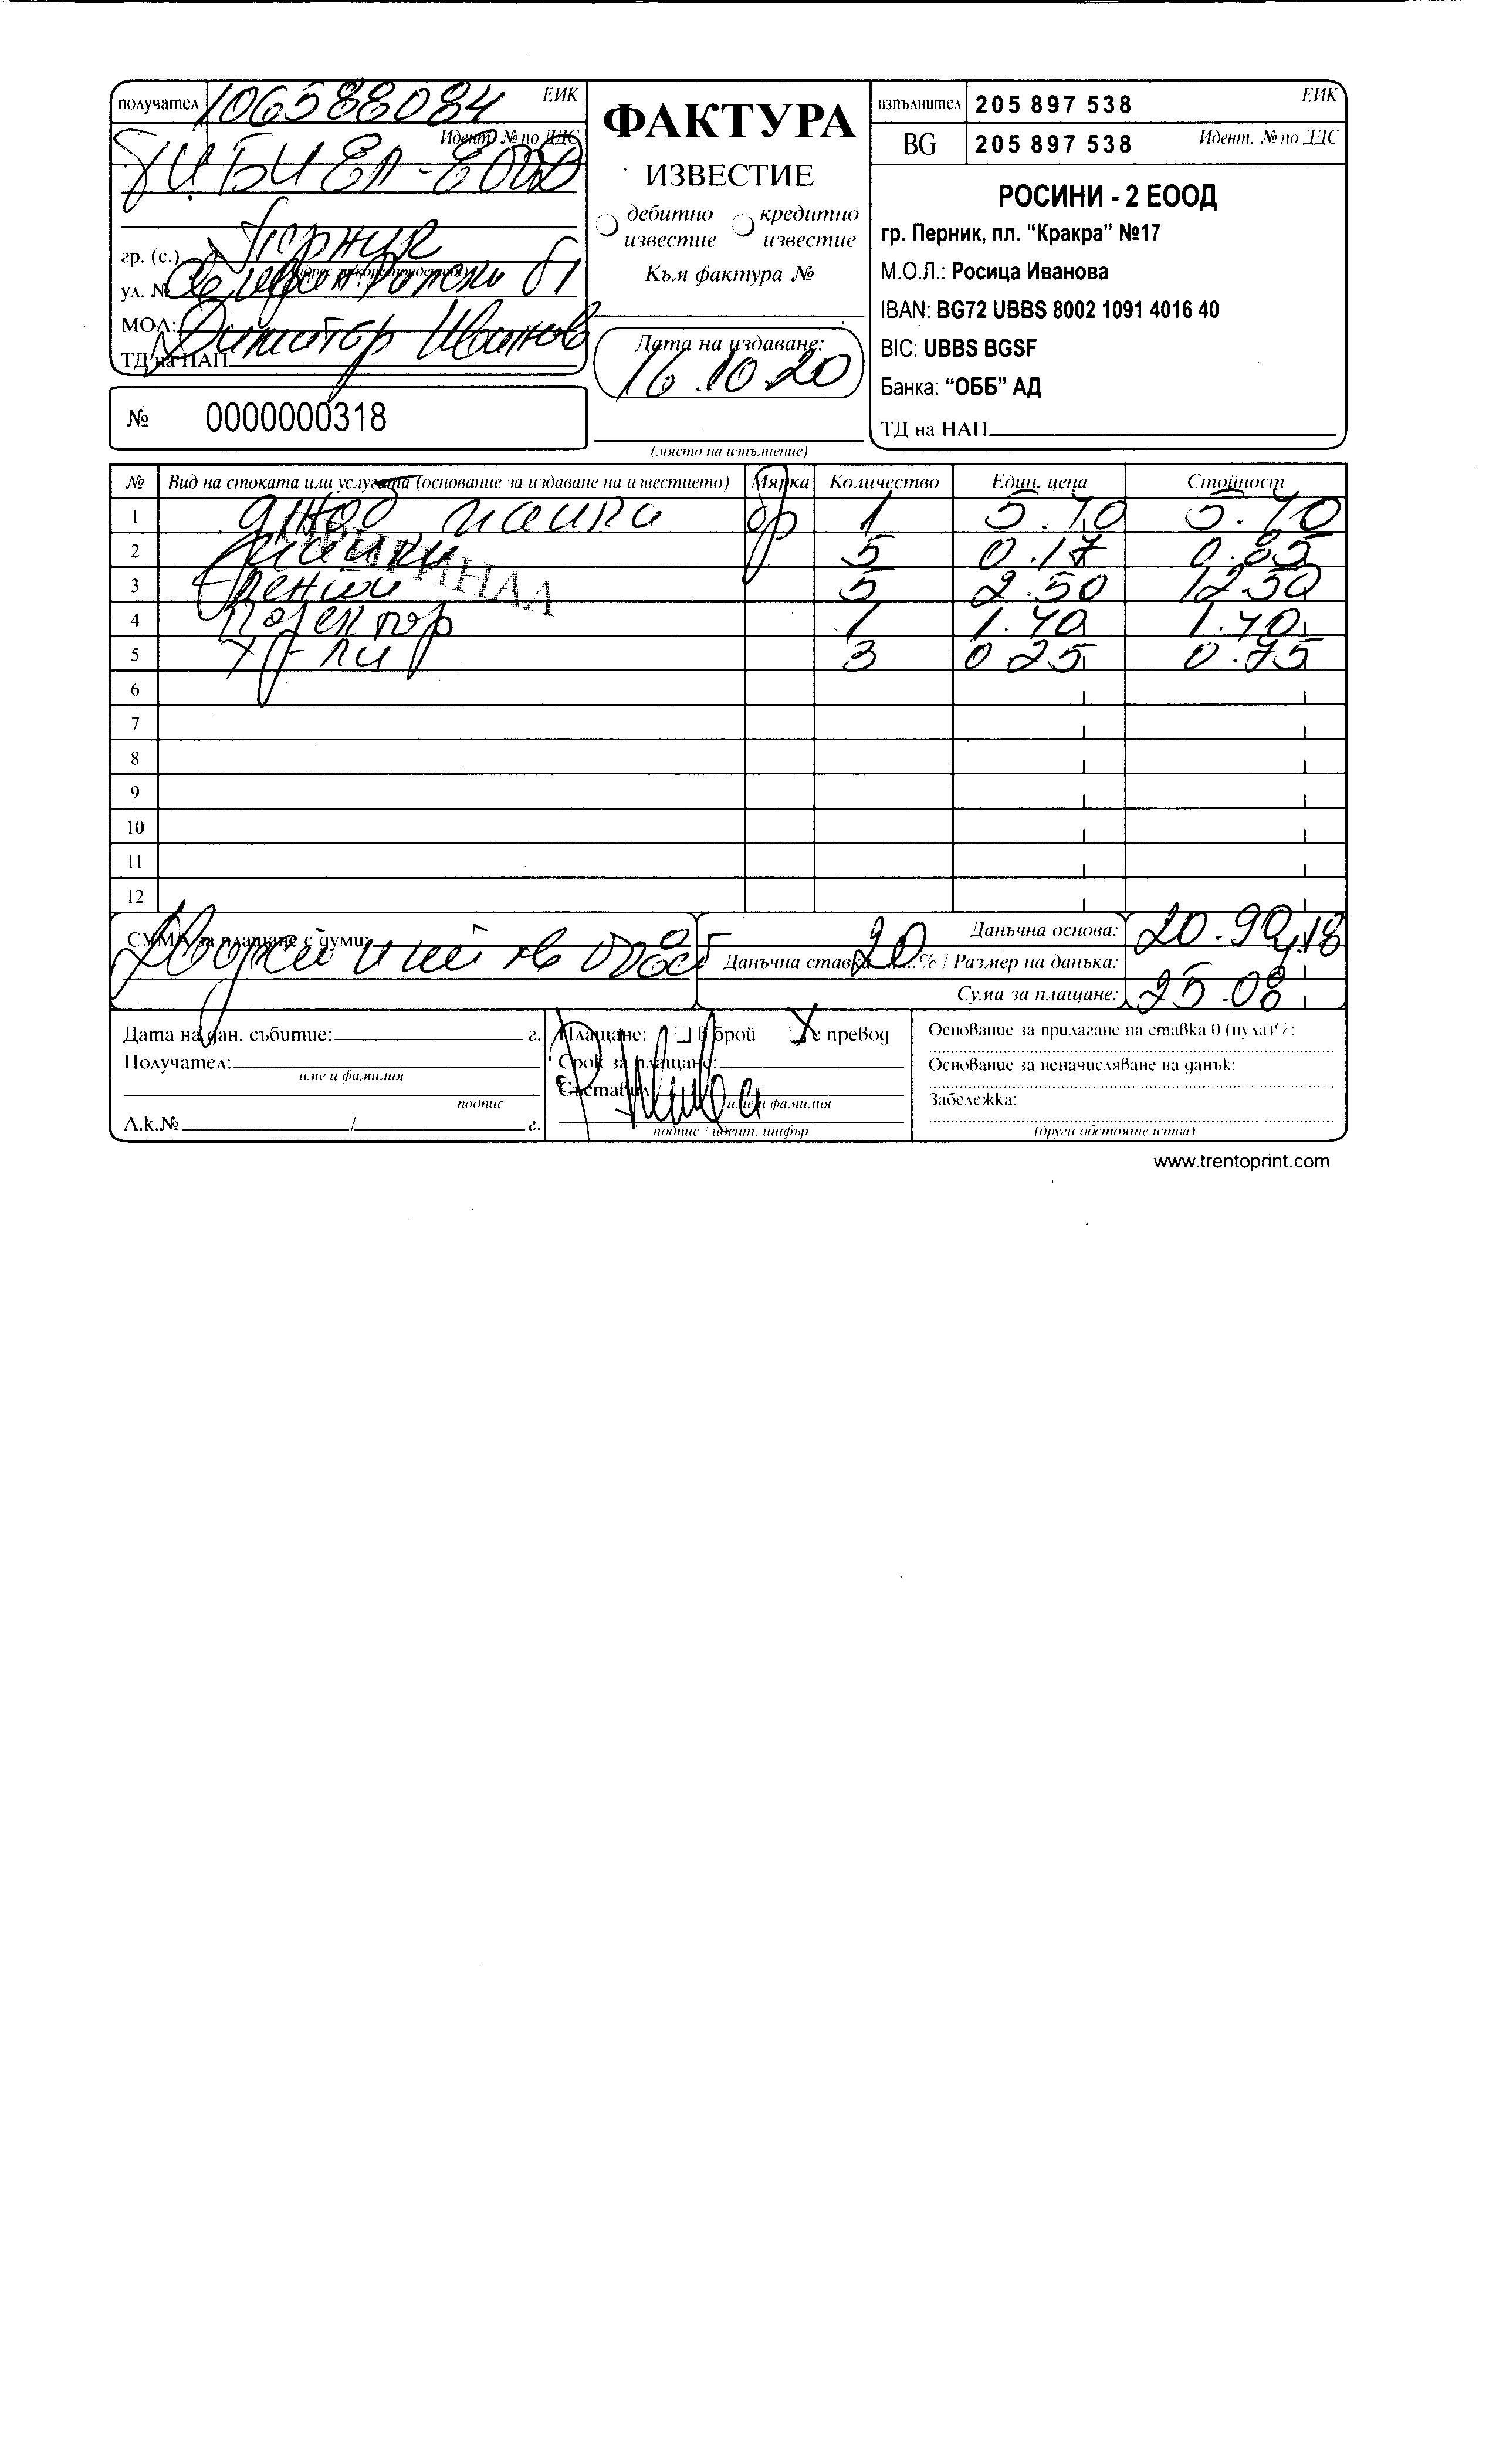 получател 106588084 ЕИК
Идент. № по ДДС
ЕООД
гр. (с.) Перник
(адрес за кореспонденция)
ул. №
МОЛ: Димитър Иванов
ТД на НАП
№ 0000000318
ФАКТУРА
ИЗВЕСТИЕ
дебитно известие кредитно известие
Към фактура №
Дата на издаване:
16.10.20
(място на изпълнение)
изпълнител 205 897 538 ЕИК
BG 205 897 538 Идент. № по ДДС
РОСИНИ - 2 ЕООД
гр. Перник, пл. “Кракра” №17
М.О.Л.: Росица Иванова
IBAN: BG72 UBBS 8002 1091 4016 40
BIC: UBBS BGSF
Банка: “ОББ” АД
ТД на НАП
№ Вид на стоката или услугата (основание за издаване на известието) Мярка Количество Един. цена Стойност
1 джоб папка бр 1 5.40 5.40
2 папки 5 0.17 0.85
3 5 2.50 12.50
4 1 1.40 1.40
5 3 0.25 0.75
ОРИГИНАЛ
6
7
8
9
10
11
12
СУМА за плащане с думи:
Данъчна основа: 20.90
Данъчна ставка 20 % / Размер на данъка: 4.18
Сума за плащане: 25.08
Дата на дан. събитие: г.
Получател:
име и фамилия
подпис
Л.к.№ / г.
Плащане: В брой X с превод
Срок за плащане:
Съставил
име и фамилия
подпис / идент. шифър
Основание за прилагане на ставка 0 (нула)%:
Основание за неначисляване на данък:
Забележка:
(други обстоятелства)
www.trentoprint.com